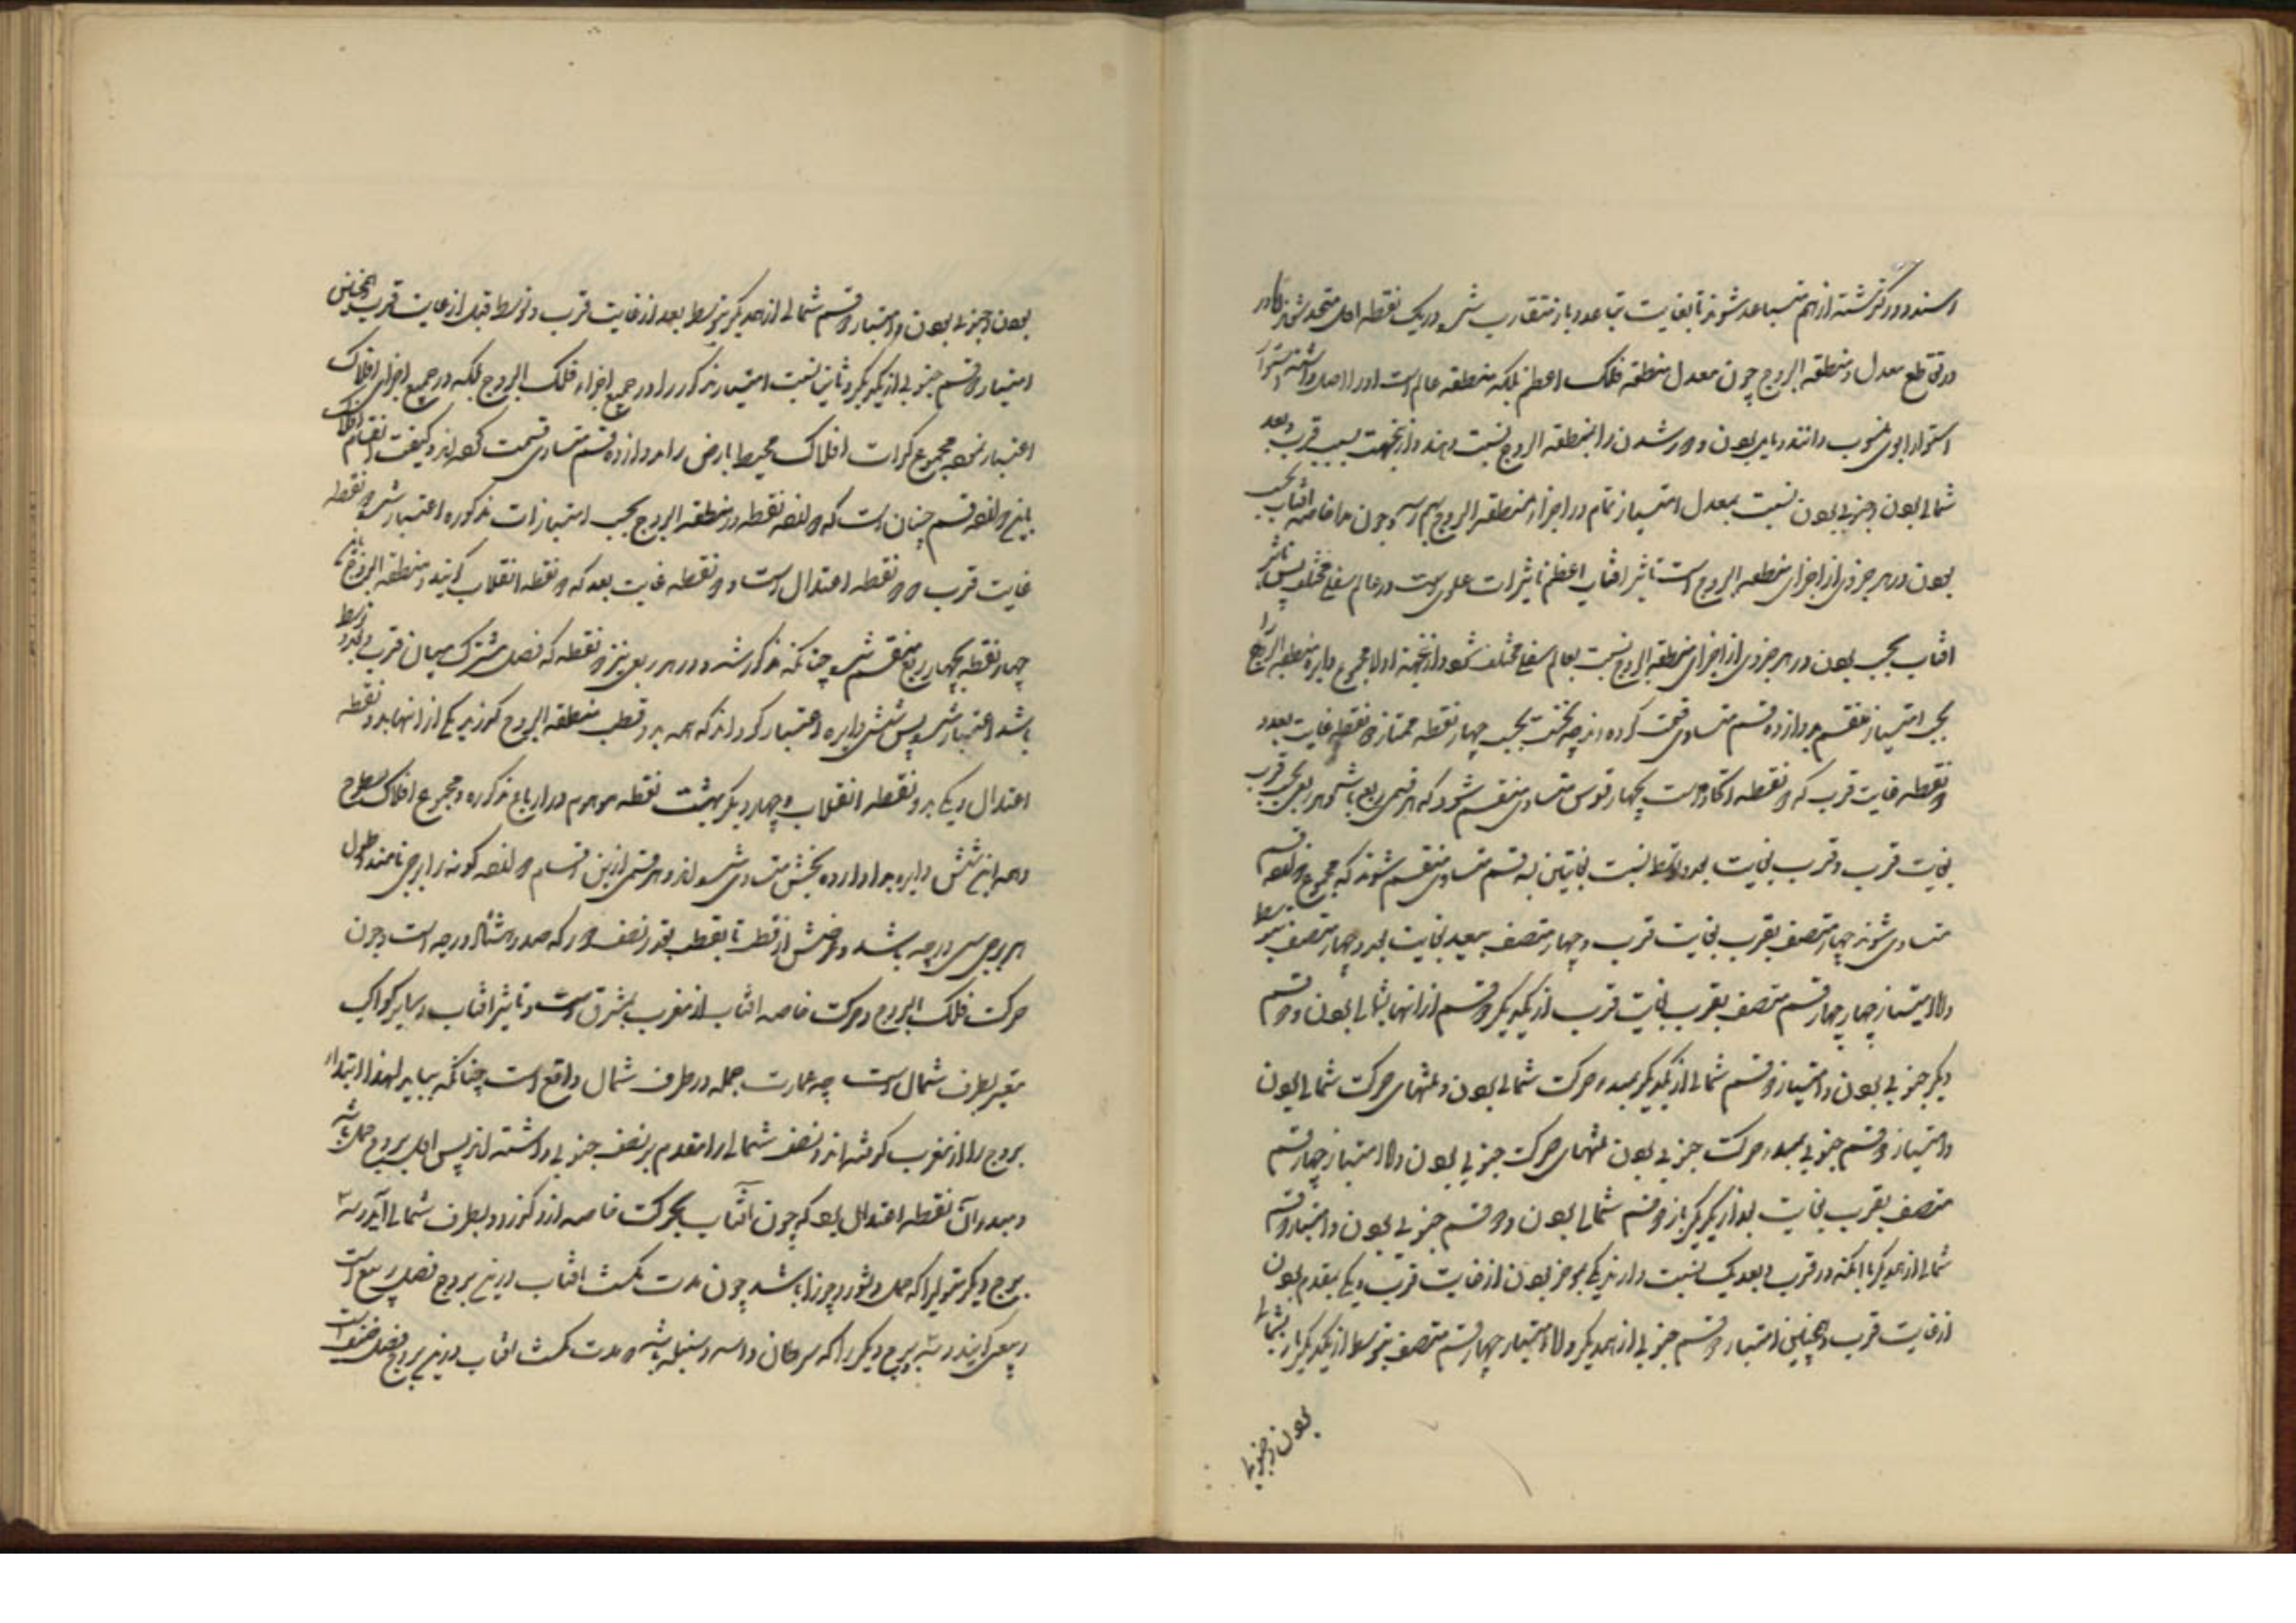 و در گذشته از هم متباعد شوند تا بغایت تباعد و باز متقارب شوند و در یک نقطه اول متحد شوند
در تقاطع معدل و منطقه البروج چون معدل منطقه فلک اعظم بلکه منطقه عالم است او را اصل داشته
استوار بودن منسوب دانند و مایل بودن و دور شدن را بمنطقه البروج نسبت دهند و ازینجهت بسبب قرب و بعد
شمالی بودن و جنوبی بودن نسبت بمعدل امتیاز تمام در اجزاء منطقه البروج بهم رسد و چون خاصه افتاب بحسب
بودن در هر جزوی از اجزای منطقه البروج است تاثیر افتاب اعظم تاثیرات علوی است در عالم سفلی مختلف پس تاثیر
افتاب بحسب بودن در هر جزوی از اجزای منطقه البروج نسبت بعالم سفلی مختلف شود و ازینجهة اولا مجموع دایره منطقه البروج را
بحسب امتیاز منقسم بدوازده قسم متساوی قسمت کرده‌اند چه نخست بحسب چهار نقطه ممتاز دو نقطه غایت بعد و
دو نقطه غایت قرب که دو نقطه است بچهار قوس متساوی منقسم شود که هر قسمی ربع باشد و هر ربعی بحسب قرب
بغایت قرب و قرب بغایت بعد و توسط نسبت بغایتین به سه قسم متساوی منقسم شوند که مجموع دوازده قسم
متساوی شوند چهار متصف بقرب بغایت قرب و چهار متصف ببعد بغایت بعد و چهار متصف بتوسط
و اما امتیاز چهار چهار قسم متصف بقرب بغایت قرب از یکدیگر دو قسم از انها بشمالی بودن و دو قسم
دیگر جنوبی بودن و امتیاز دو قسم شمالی از یکدیگر بمبدء حرکت شمالی بودن و منتهای حرکت شمالی بودن
و امتیاز دو قسم جنوبی بمبدء حرکت جنوبی بودن منتهای حرکت جنوبی بودن و اما امتیاز چهار قسم
متصف بقرب بغایت بعد از یکدیگر باز دو قسم شمالی بودن و دو قسم جنوبی بودن و امتیاز دو قسم
شمالی از همدیگر با آنکه در قرب و بعد یک نسبت دارند یکی بموخر بودن از غایت قرب و یکی بمقدم بودن
از غایت قرب و همچنین امتیاز دو قسم جنوبی از همدیگر و اما امتیاز چهار قسم متصف بتوسط از یکدیگر باز بشمالی
بودن و جنوبی
بودن و جنوبی بودن و امتیاز دو قسم شمالی از همدیگر بتوسط بعد از غایت قرب و توسط قبل از غایت قرب و همچنین
امتیاز دو قسم جنوبی از یکدیگر و ثانیا نسبت امتیاز مذکور را در جمیع اجزاء فلک البروج بلکه در جمیع اجزای افلاک
اعتبار نموده مجموع کرات افلاک محیط بارض را بدوازده قسم متساوی قسمت کرده‌اند و کیفیت انقسام افلاک
باین دوازده قسم چنان است که دوازده نقطه در منطقه البروج بحسب امتیازات مذکوره اعتبار شود دو نقطه
غایت قرب و دو نقطه اعتدال است و دو نقطه غایت بعد که دو نقطه انقلاب گویند و منطقه البروج باین
چهار نقطه بچهار ربع منقسم شود چنانکه مذکور شد و در هر ربعی نیز دو نقطه که فصل مشترک میان قرب و بعد و توسط
باشد اعتبار شود پس شش دایره اعتبار کرده‌اند که همه بر دو قطب منطقه البروج گذرند یکی از انها بدو نقطه
اعتدال و یکی بدو نقطه انقلاب و چهار دیگر بهشت نقطه موهوم در ارباع مذکوره و مجموع افلاک بسطوح
و همه این شش دایره بدوازده بخش متساوی شده‌اند و هر قسمی از این اقسام دوازده گونه را برجی نامند و طول
هر برجی سی درجه باشد و عرضش از قطب تا بقطب بقدر نصف دور که صد و هشتاد درجه است و چون
حرکت فلک البروج و حرکت خاصه افتاب از مغرب بمشرق است و تاثیر افتاب و سایر کواکب
بطرف شمال است چه عمارت جمله در طرف شمال واقع است چنانکه بیاید لهذا ابتداء
بروج را از مغرب گرفته‌اند و نصف شمالی را مقدم بر نصف جنوبی داشته‌اند پس اول بروج حمل باشد
و مبدء آن نقطه اعتدال بود که چون آفتاب بحرکت خاصه از او گذرد بطرف شمال آید و سه
برج دیگر متوالی را که حمل و ثور و جوزا باشد چون مدت مکث افتاب درین بروج فصل ربیع است
ربیعی گویند و سه برج دیگر را که سرطان و اسد و سنبله باشد و مدت مکث افتاب درین بروج فصل صیف است